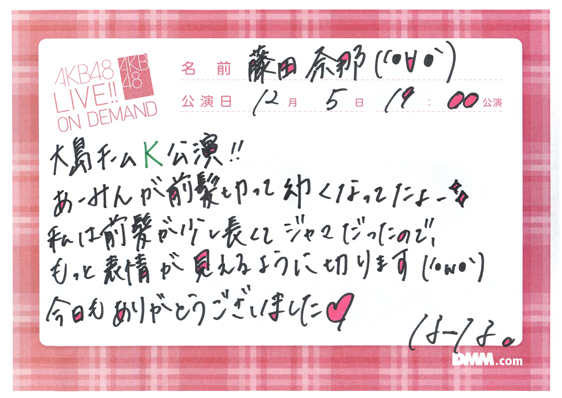 AKB48
LIVE!!
ON DEMAND
AKB
48
名前 藤田奈那(('o'∀'o'))
公演日 12月 5日 19:00公演
大島チームK公演!!
あーみんが前髪切って幼くなってたよー
私は前髪が少し長くてジャマだったので、
もっと表情が見えるように切ります('o'ω'o')
今日もありがとうございました
なーな。
DMM.com